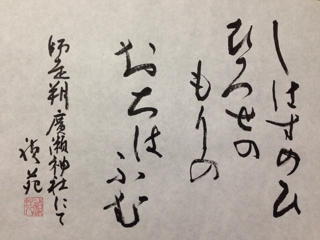 しはすの日
ひろせの
もりの
おちはふむ
師走朔廣瀬神社にて